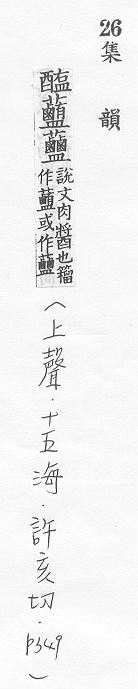 26
集韻
醢
說文肉醬也籀
作或作
（上聲．十五海．許亥切．p349）